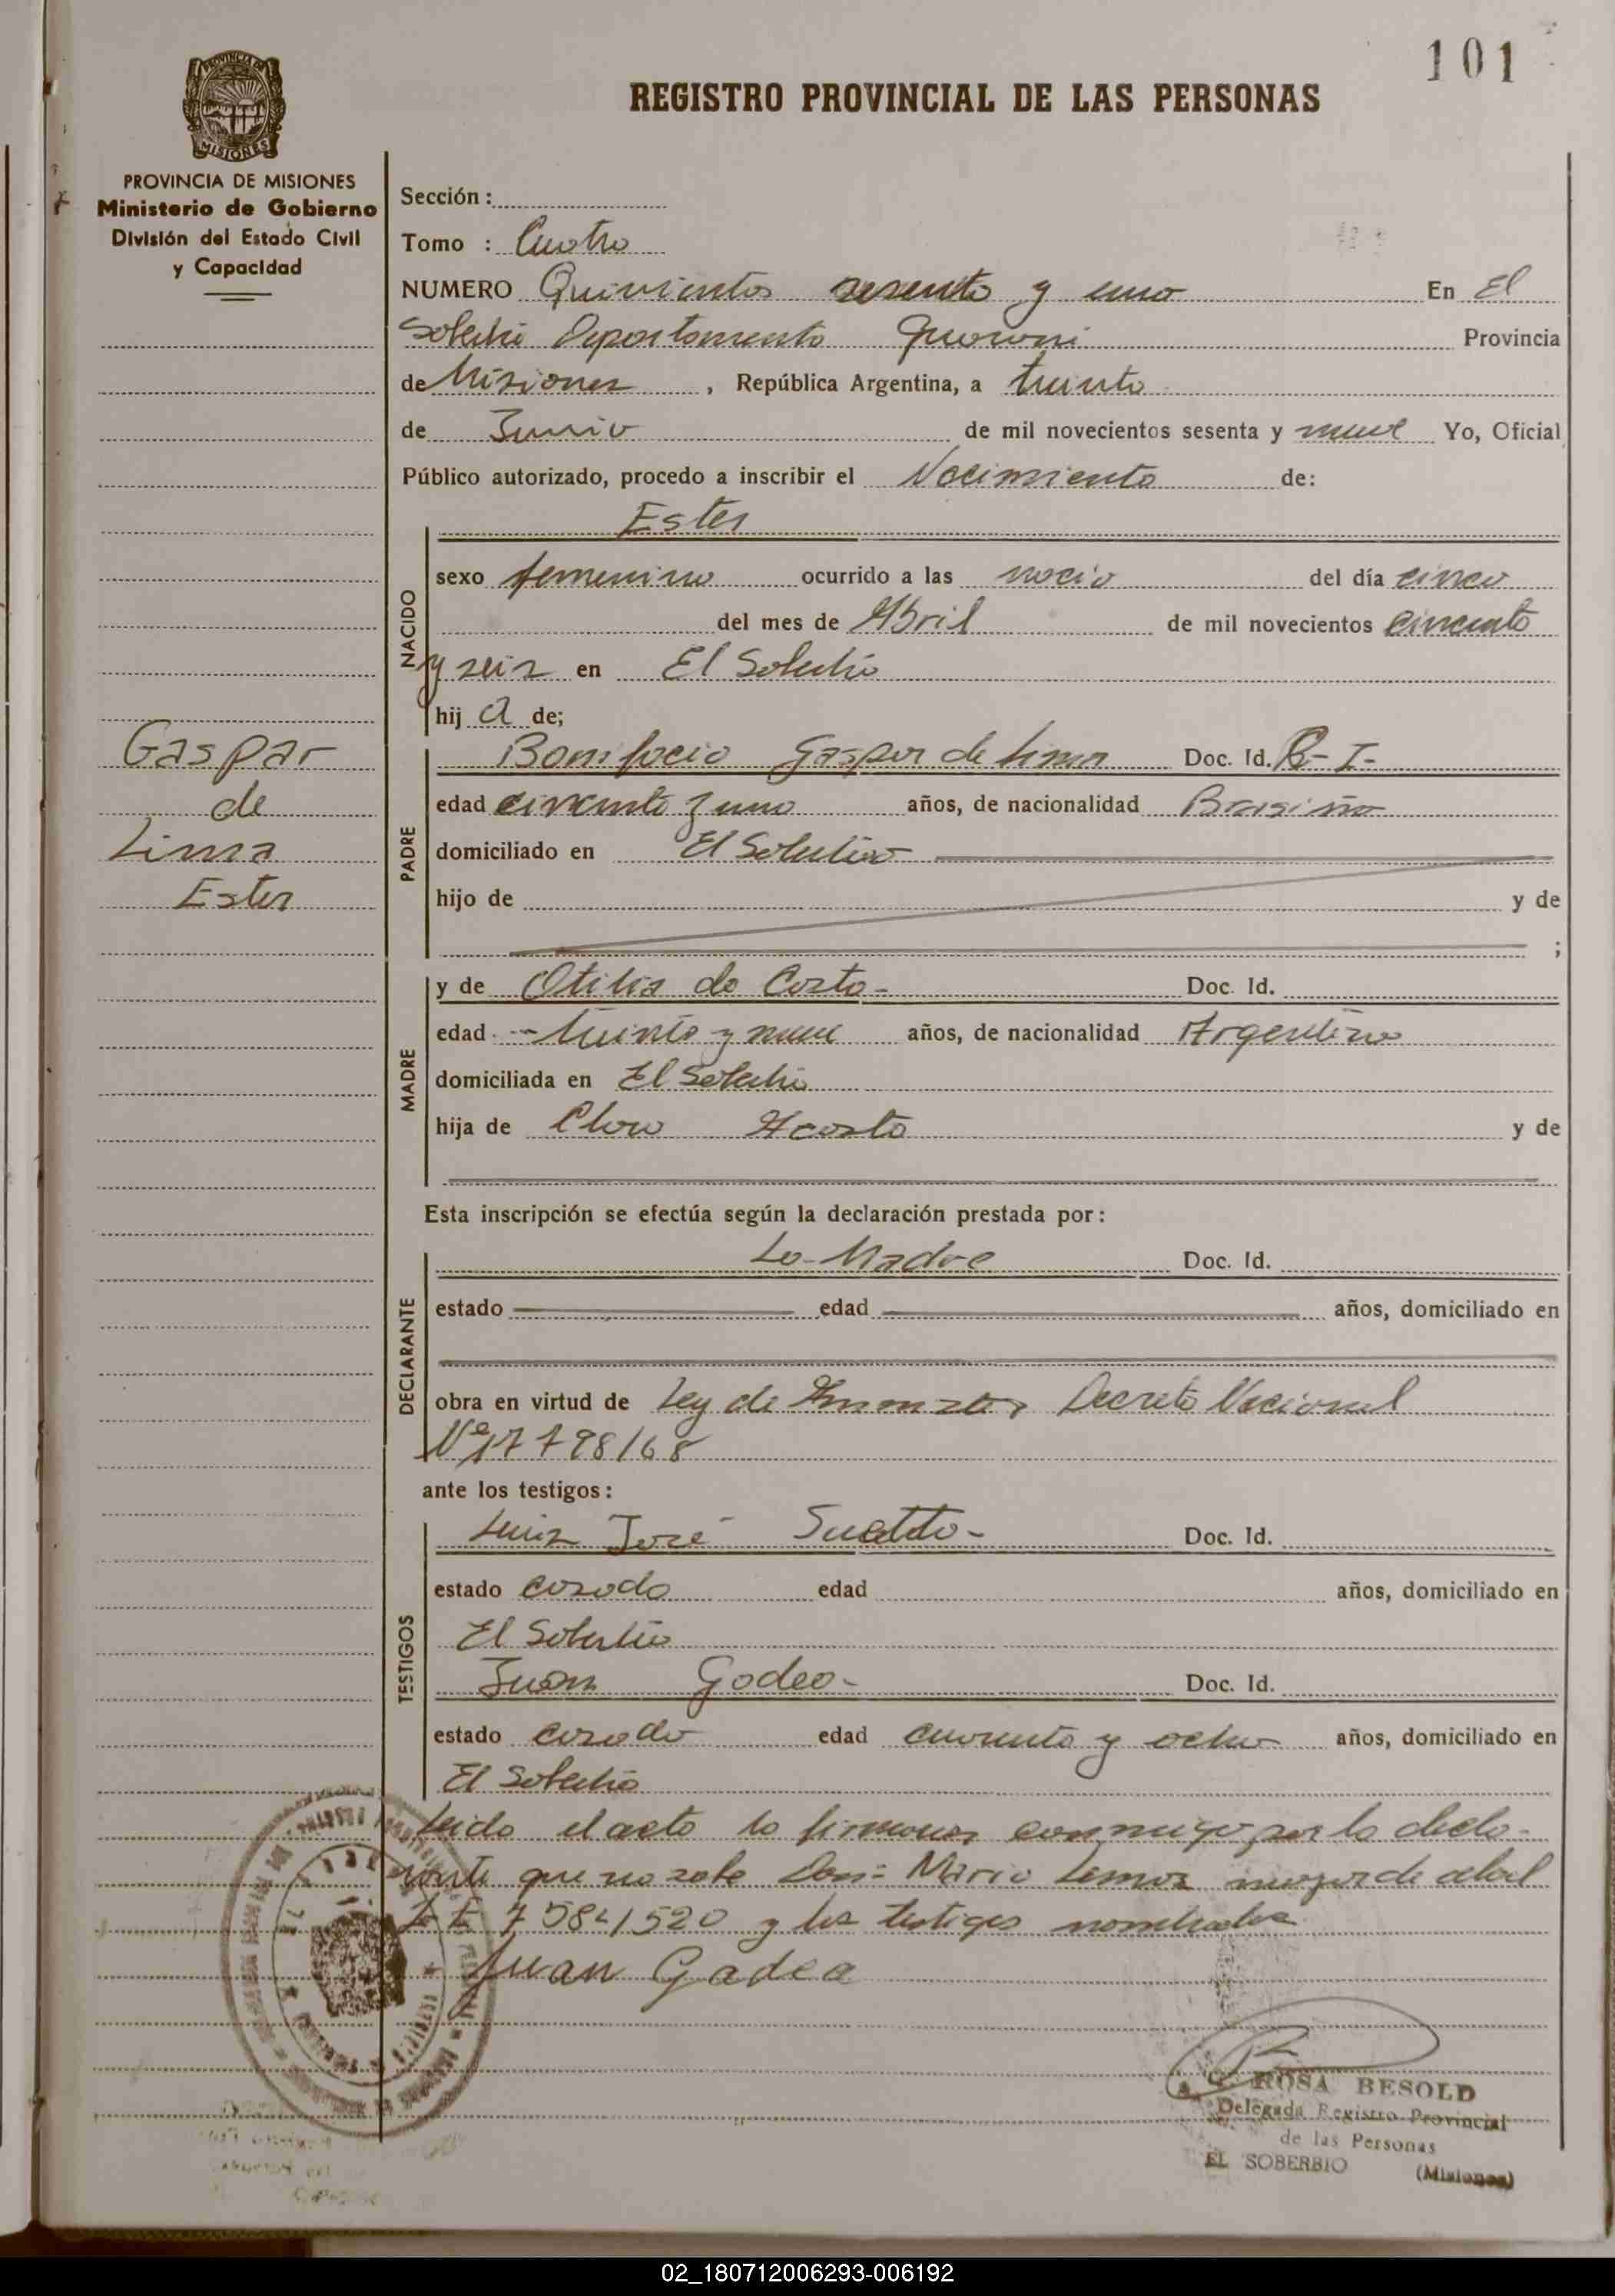 101
REGISTRO PROVINCIAL DE LAS PERSONAS
PROVINCIA DE
MISIONES
PROVINCIA DE MISIONES
Ministerio de Gobierno
División del Estado Civil
y Capacidad
Sección:
Tomo : Cuatro
NUMERO Quinientos sesenta y uno En El
Soberbio Departamento Guarani Provincia
de Misiones, República Argentina, a treinta
de Junio de mil novecientos sesenta y nueve Yo, Oficial
Público autorizado, procedo a inscribir el Nacimiento de:
Ester
NACIDO
sexo femenino ocurrido a las del día cinco
del mes de Abril de mil novecientos cincuenta
y seis en El Soberbio
hij a de;
Gaspar
de
Lima
Ester
PADRE
Bonifacio Gaspar de Lima Doc. Id. C-I-
edad cincuenta y uno años, de nacionalidad
domiciliado en El Soberbio
hijo de y de
;
MADRE
y de Otilia da Costa- Doc. Id.
edad treinta y nueve años, de nacionalidad Argentina
domiciliada en El Soberbio
hija de Acosta y de
Esta inscripción se efectúa según la declaración prestada por:
DECLARANTE
La Madre Doc. Id.
estado edad años, domiciliado en
obra en virtud de Ley de Decreto Nacional
Nº 17798/68
ante los testigos:
TESTIGOS
Luiz José Doc. Id.
estado casado edad años, domiciliado en
El Soberbio
Juan Gadea- Doc. Id.
estado casado edad cuarenta y ocho años, domiciliado en
El Soberbio
Leido el acta la firman conmigo por la decla-
rante que no sabe Don: Mario Lemos mayor de edad
y los testigos nombrados
Juan Gadea
ROSA BESOLD
Delegada Registro Provincial
de las Personas
EL SOBERBIO (Misiones)
02_180712006293-006192